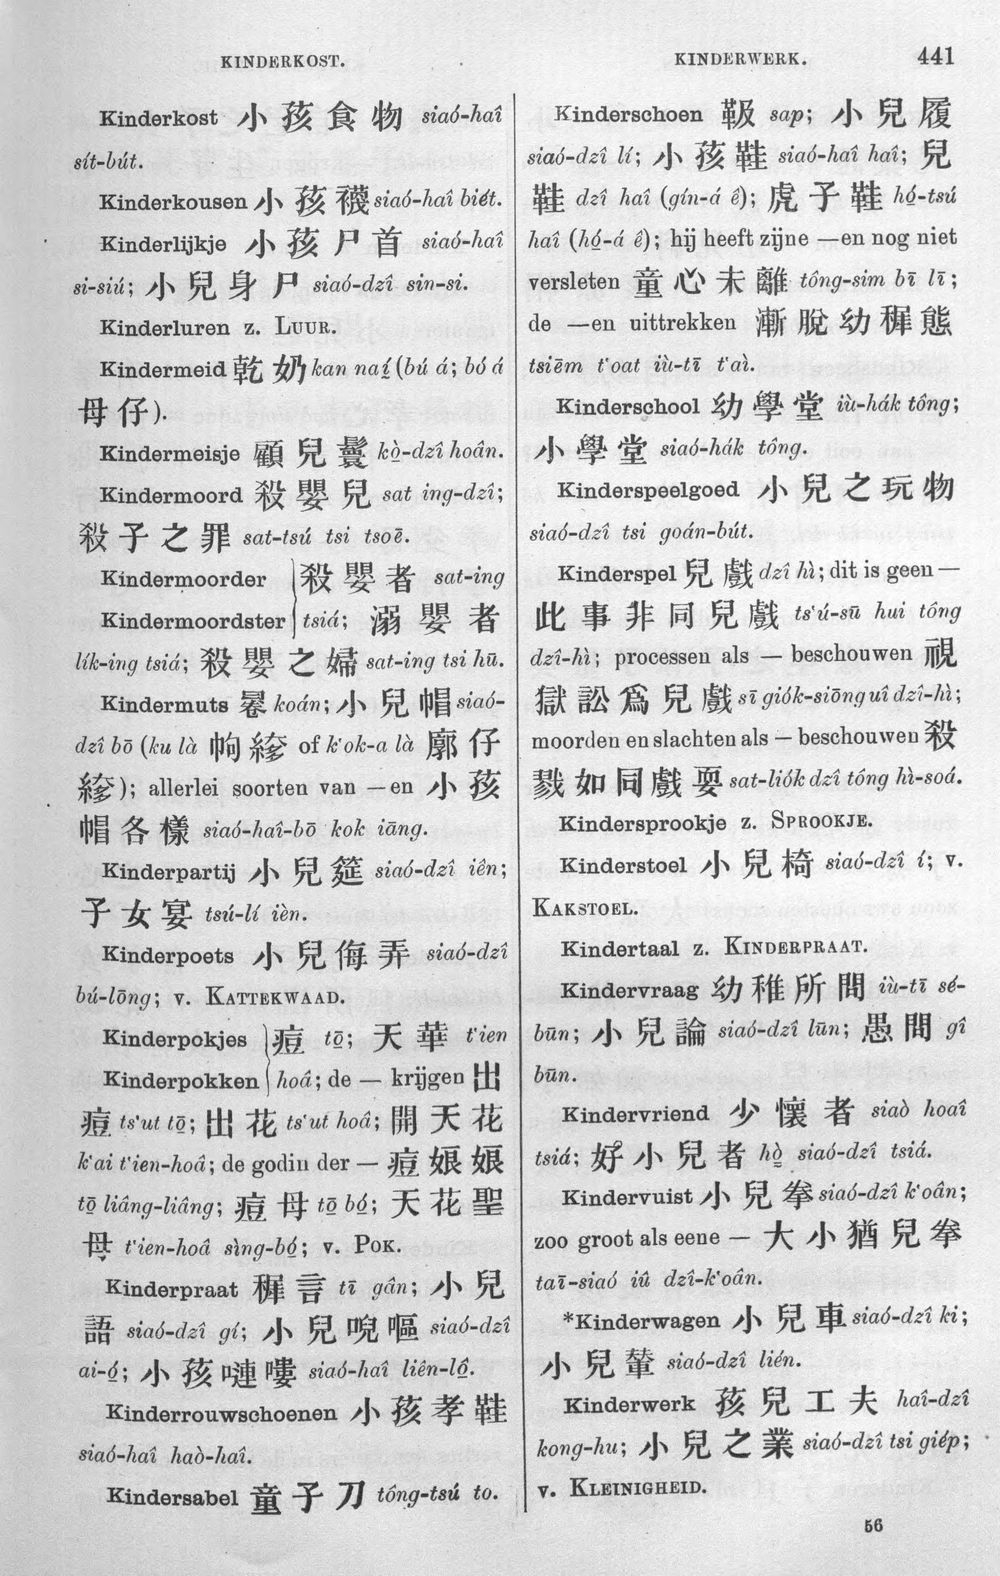 KINDERKOST.
KINDERWERK.
441
Kinderkost 小孩食物 siaó-haî
sít-bút.
Kinderkousen 小孩襪 siaó-haî biét.
Kinderlijkje 小孩尸首 siaó-haî
si-siú; 小兒身尸 siaó-dzî sin-si.
Kinderluren z. LUUR.
Kindermeid 乾奶 kan naí (bú á; bó á
母仔).
Kindermeisje 顧兒鬟 kò-dzî hoân.
Kindermoord 殺嬰兒 sat ing-dzî;
殺子之罪 sat-tsú tsi tsoē.
Kindermoorder 殺嬰者 sat-ing
Kindermoordster tsiá; 溺嬰者
lík-ing tsiá; 殺嬰之婦 sat-ing tsi hū.
Kindermuts koán; 小兒帽 siaó-
dzî bō (ku là of k'ok-a là 廓仔
); allerlei soorten van —en 小孩
帽各樣 siaó-haî-bō kok iāng.
Kinderpartij 小兒筵 siaó-dzî iên;
子女宴 tsú-lí ièn.
Kinderpoets 小兒侮弄 siaó-dzî
bú-lōng; v. KATTEKWAAD.
Kinderpokjes 痘 tō̱; 天華 t'ien
Kinderpokken hoâ; de — krijgen 出
痘 ts'ut tō̱; 出花 ts'ut hoâ; 開天花
k'ai t'ien-hoâ; de godin der — 痘娘娘
tō̱ liâng-liâng; 痘母 tō̱ bó̱; 天花聖
母 t'ien-hoâ sìng-bó̱; v. POK.
Kinderpraat 穉言 tī gân; 小兒
語 siaó-dzî gí; 小兒唲嘔 siaó-dzî
ai-ó̱; 小孩嗹嘍 siaó-haî liên-lô̱.
Kinderrouwschoenen 小孩孝鞋
siaó-haî haò-haî.
Kindersabel 童子刀 tông-tsú to.
Kinderschoen 靸 sap; 小兒履
siaó-dzî lí; 小孩鞋 siaó-haî haî; 兒
鞋 dzî haî (gín-á ê); 虎子鞋 hó̱-tsú
haî (hó̱-á ê); hij heeft zijne —en nog niet
versleten 童心未離 tông-sim bī lī;
de —en uittrekken 漸脫幼穉態
tsiēm t'oat iù-tī t'aì.
Kinderschool 幼學堂 iù-hák tông;
小學堂 siaó-hák tông.
Kinderspeelgoed 小兒之玩物
siaó-dzî tsi goán-bút.
Kinderspel 兒戲 dzî hì; dit is geen —
此事非同兒戲 ts'ú-sū hui tông
dzî-hì; processen als — beschouwen 視
獄訟爲兒戲 sī giók-siōng uî dzî-hì;
moorden en slachten als — beschouwen 殺
戮如同戲耍 sat-liók dzî tông hì-soá.
Kindersprookje z. SPROOKJE.
Kinderstoel 小兒椅 siaó-dzî í; v.
KAKSTOEL.
Kindertaal z. KINDERPRAAT.
Kindervraag 幼稚所問 iù-tī sé-
būn; 小兒論 siaó-dzî lūn; 愚問 gî
būn.
Kindervriend 少懷者 siaò hoaî
tsiá; 好小兒者 hò̱ siaó-dzî tsiá.
Kindervuist 小兒拳 siaó-dzî k'oân;
zoo groot als eene — 大小猶兒拳
taī-siaó iû dzî-k'oân.
*Kinderwagen 小兒車 siaó-dzî ki;
小兒輦 siaó-dzî lién.
Kinderwerk 孩兒工夫 haî-dzî
kong-hu; 小兒之業 siaó-dzî tsi giép;
v. KLEINIGHEID.
56